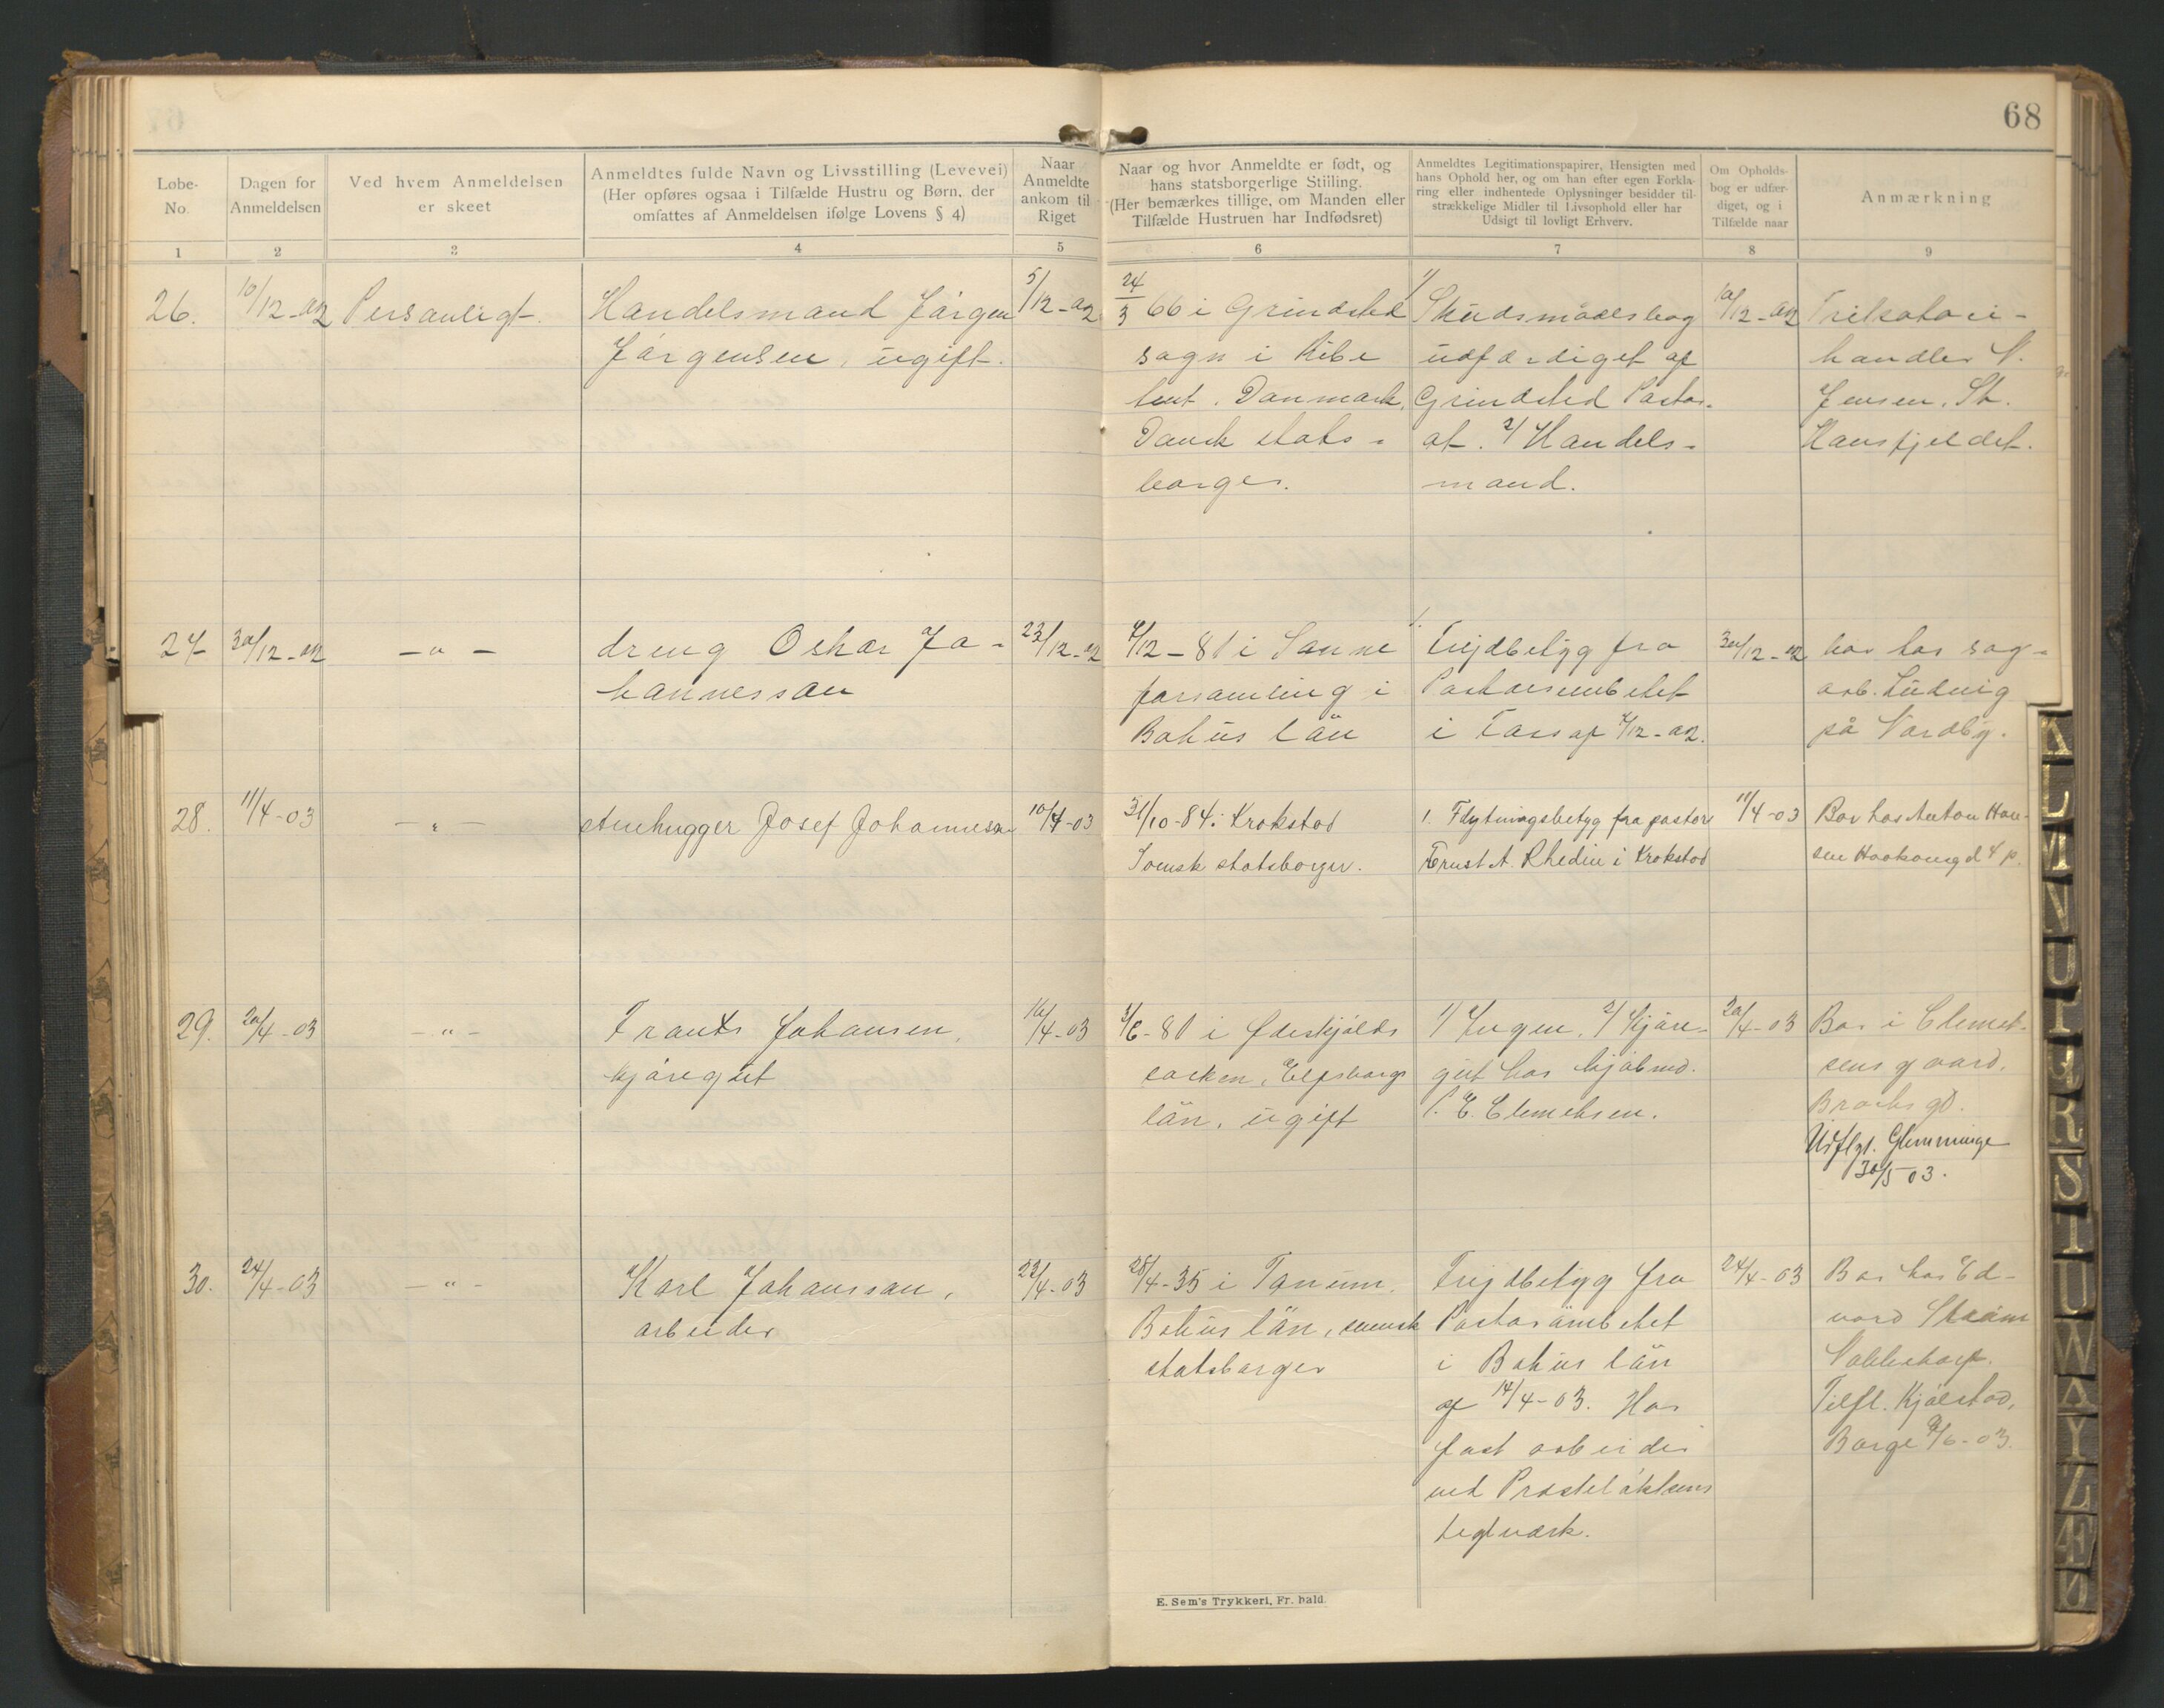 68
Løbe-
No.
Dagen for
Anmeldelsen
Ved hvem Anmeldelsen
er skeet
Anmeldtes fulde Navn og Livsstilling (Levevei)
(Her opføres ogsaa i Tilfælde Hustru og Børn, der
omfattes af Anmeldelsen ifølge Lovens § 4)
Naar
Anmeldte
ankom til
Riget
Naar og hvor Anmeldte er født, og
hans statsborgerlige Stiiling.
(Her bemærkes tillige, om Manden eller
Tilfælde Hustruen har Indfødsret)
Anmeldtes Legitimationspapirer, Hensigten med
hans Ophold her, og om han efter egen Forkla-
ring eller indhentede Oplysninger besidder til-
strækkelige Midler til Livsophold eller har
Udsigt til lovligt Erhverv.
Om Opholds-
bog er udfær-
diget, og i
Tilfælde naar
Anmærkning
1 2 3 4 5 6 7 8 9
26.
10/12-02
Personligt.
Handelsmand Jörgen
Jörgensen, ugift.
5/12-02
24/3 66 i Grindsted
sogn i Ribe
amt. Danmark,
Dansk stats-
borger.
1/ Skudsmaalsbog
udfærdiget af
Grindsted Pastor-
at. 2/ Handels-
mand.
10/12-02
Trikotari-
handler
Jensen, St.
Hansfjeldet.
27
30/12-02
-"-
dreng Oskar Jo-
hannesson
23/12-02
/12-81 i Sanne
forsamling i
Bohus län
1. Frejdbetyg fra
Pastorsembetet
i af /12-02.
30/12-02
bor hos sag-
arb. Ludvig
på Nordby.
28.
11/4-03
-"-
Stenhugger Josef Johannesson
10/4-03
31/10-84 i Krokstad
Svensk statsborger.
1. Flytningsbetyg fra pastor
Ernst A. Rhedin i Krokstad
11/4-03
Bor hos Anton Han-
sen
29.
20/4-03
-"-
Frants Johansen,
kjöregut
16/4-03
/6-80 i Ødeskjölds
socken, Elfsborgs
län, ugift
1/ Ingen. 2/ Kjöre-
gut hos kjöbmd.
P. E. Clemetsen.
20/4-03
Bor i Clemet-
sens gaard,
Brochsgd.
Udflgt. Glemminge
30/5 03.
30.
24/4-03
-"-
Karl Johansson,
arbeider
22/4-03
28/4-35 i Tanum,
Bohus län, svensk
statsborger
Frejdbetyg fra
Pastorämbetet
i Bohus län
af 14/4-03. Har
fast arbeide
ved Prästelökkens
teglværk.
24/4-03
Bor hos Ed-
vard Ström
Labbetorp.
Tilfl. Kjölstad,
Borge /6-03.
E. Sem's Trykkeri, Fr. hald.
L
M
N
O
P
R
S
T
U
W
A
Y
Z
Æ
Ø